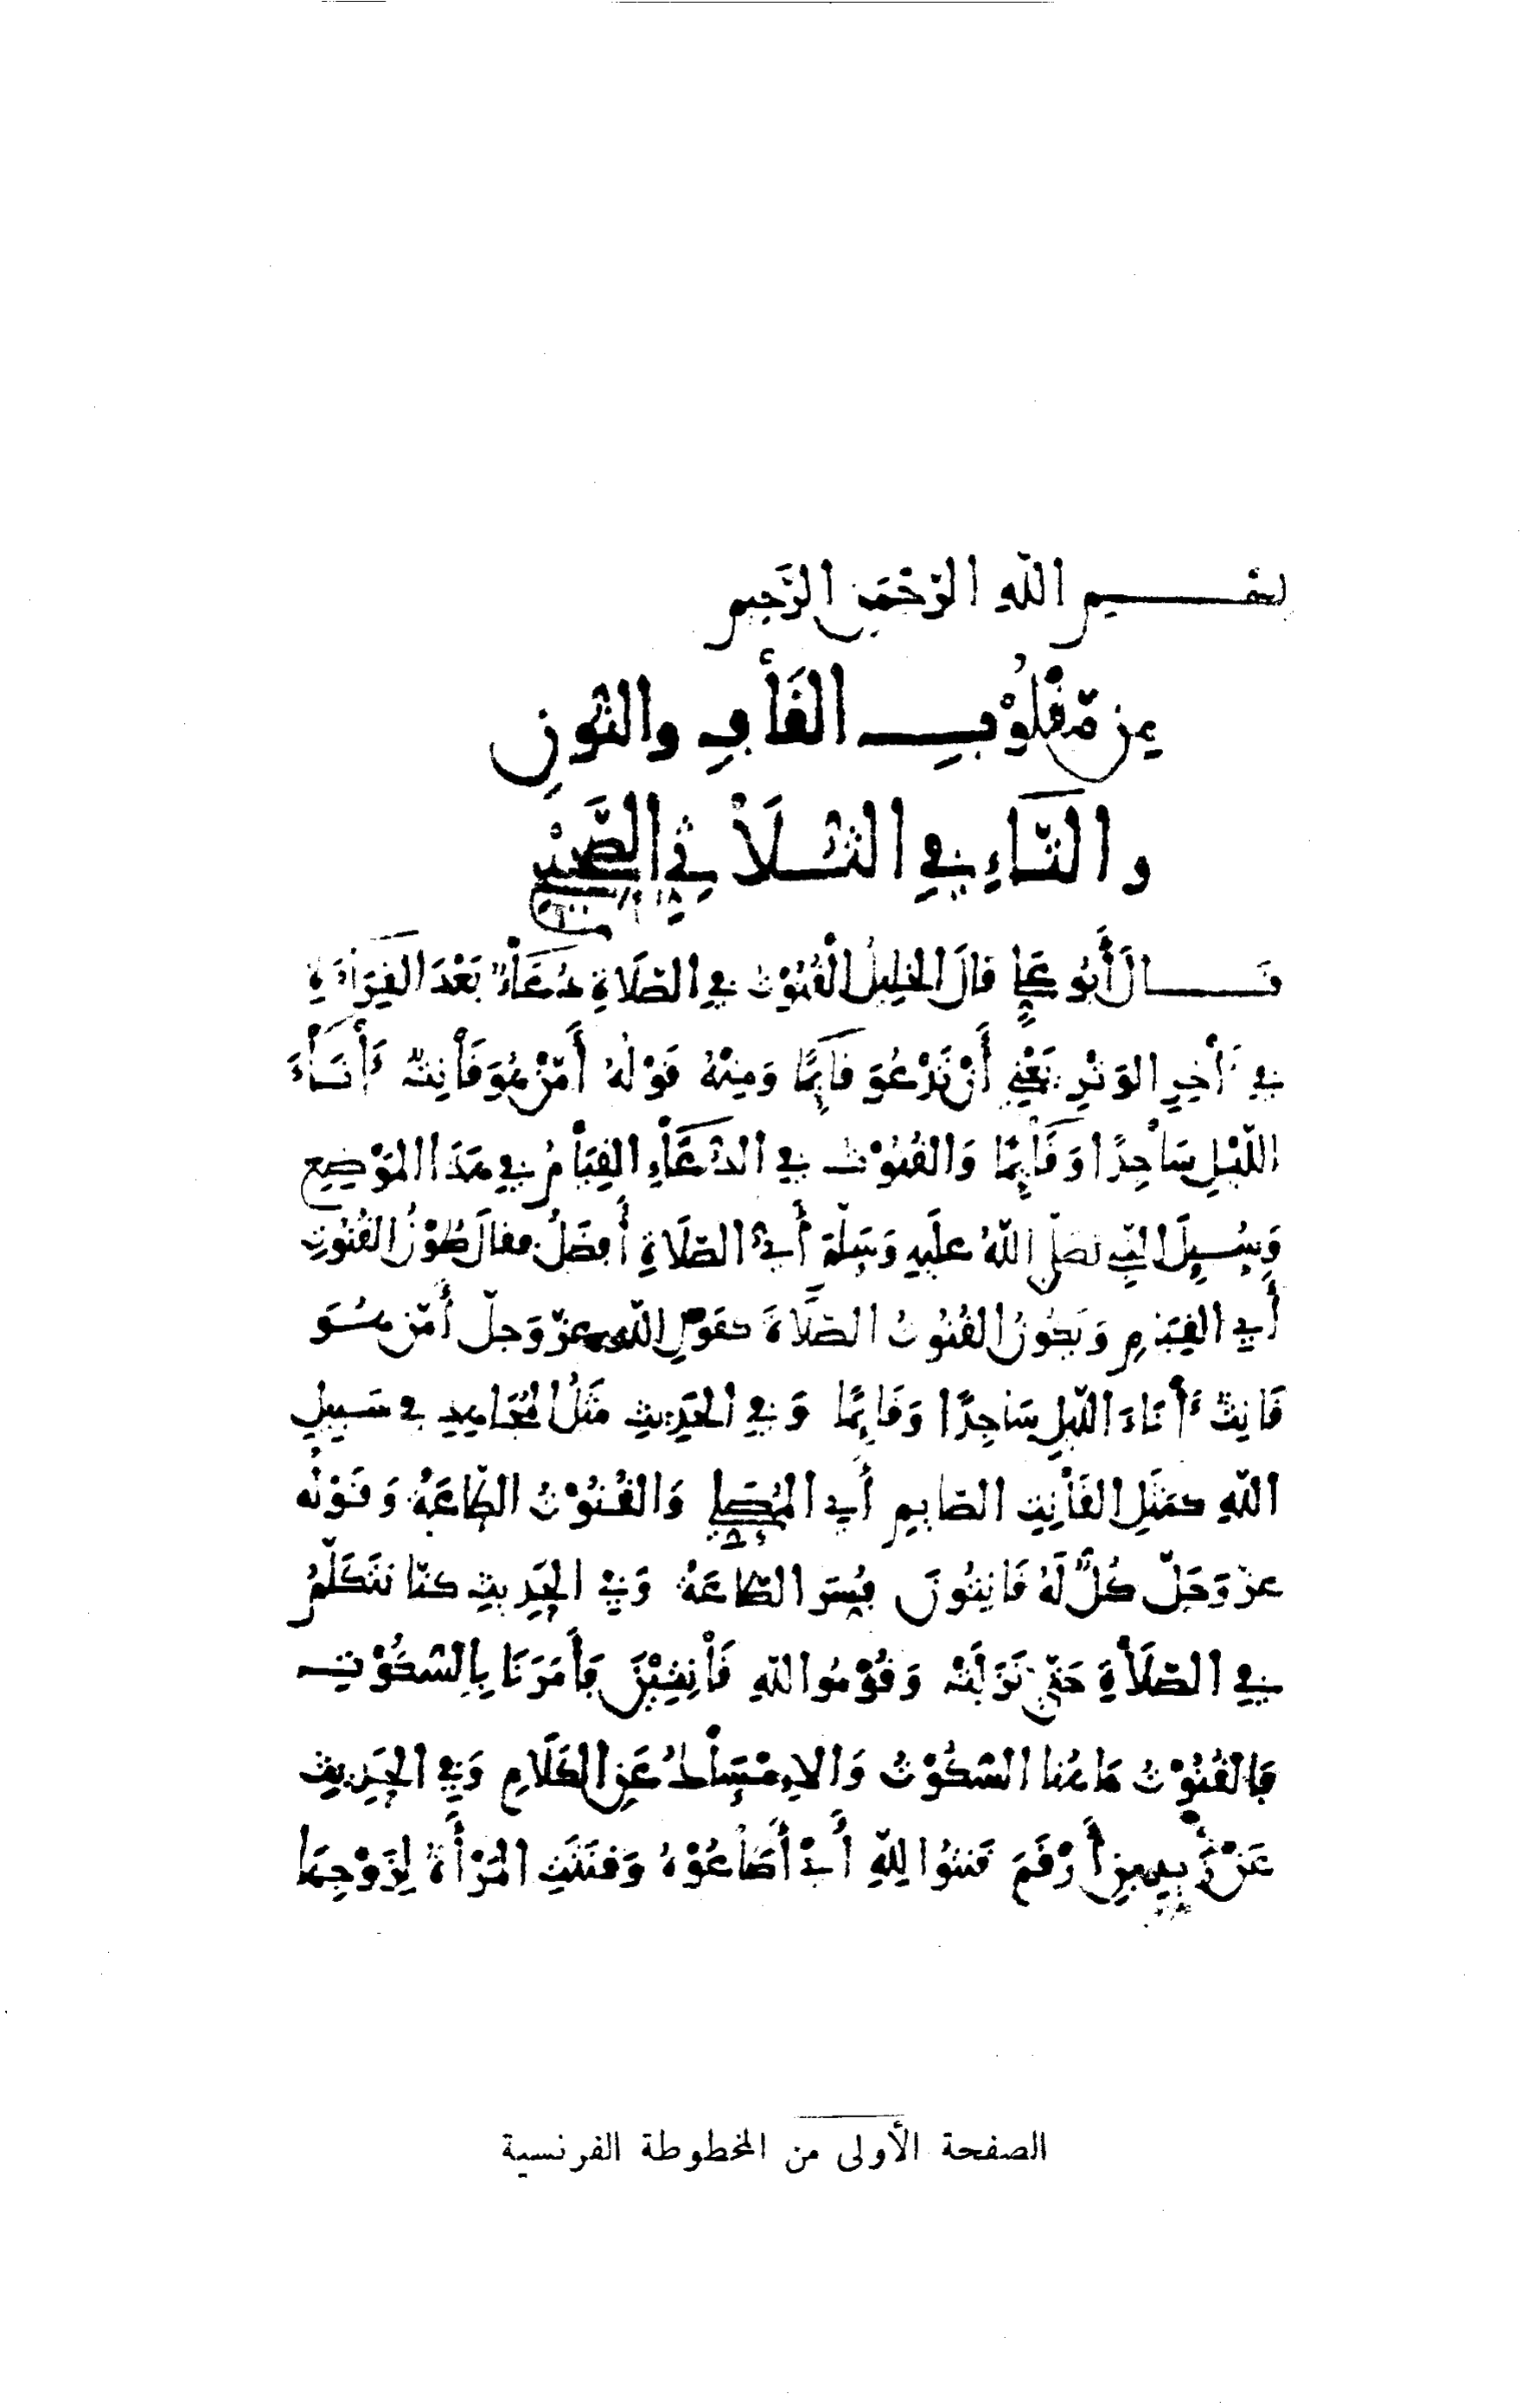 بسم الله الرَّحْمَنِ الرَّحِيمِ
مِن مَّقْلُوْبِ القَافِ والنُّونِ
والتَّاءِ فِي الثُّلَاثِي الصَّحِيْحِ
قَالَ أَبُو عَلِيٍّ قَالَ الخَلِيلُ القُنُوْتُ فِي الصَّلَاةِ دُعَاءٌ بَعْدَ القِرَاءَةِ
فِي ءَاخِرِ الوَتْرِ يَعْنِي أَنْ تَدْعُوَ قَائِمًا وَمِنْهُ قَوْلُهُ أَمَّنْ هُوَ قَانِتٌ ءَانَاءَ
اللَّيْلِ سَاجِدًا وَقَائِمًا وَالقُنُوْتُ فِي الدُّعَاءِ القِيَامُ فِي هَذَا المَوْضِعِ
وَسُئِلَ النَّبِي صَلَّى اللَّهُ عَلَيهِ وَسَلَّمَ أَيُّ الصَّلَاةِ أَفْضَلُ فقالَ طُوْلُ القُنُوتِ
أَي القِيَامِ وَيَكُونُ القُنُوتُ الصَّلَاةَ كقولِ اللَّهِ عزّ وَجلّ أَمَّن هُوَ
قَانِتٌ ءَانَاءَ اللَّيلِ سَاجِدًا وَقَائِمًا وَفِي الحَدِيثِ مَثَلُ المُجَاهِدِ فِي سَبِيلِ
اللَّهِ كمَثَلِ القَانِتِ الصَّايِمِ أَي المُصَلِّي وَالقُنُوْتُ الطَّاعَةُ وَقَوْلُه
عزّ وَجَلّ كُلٌّ لَهُ قَانِتُونَ فُسِّرَ الطَّاعَةُ وَفِي الحَدِيثِ كنّا نَتَكَلَّمُ
فِي الصَّلَاةِ حَتَّى نَزَلَتْ وَقُوْمُوا للهِ قَانِتِيْنَ فَأَمَرَنَا بِالسُّكُوْتِ
فَالقُنُوْتُ هَاهُنا السُّكُوْتُ وَالاِمْسَاكُ عَنِ الكَلَامِ وَفِي الحَدِيثِ
عَنْ زَيْدِ بنِ أَرْقَمَ قنتُوا لِلَّهِ أَيْ أَطَاعُوْهُ وَقَنَتَتِ المَرْأَةُ لِزَوْجِهَا
الصفحة الأولى من المخطوطة الفرنسية